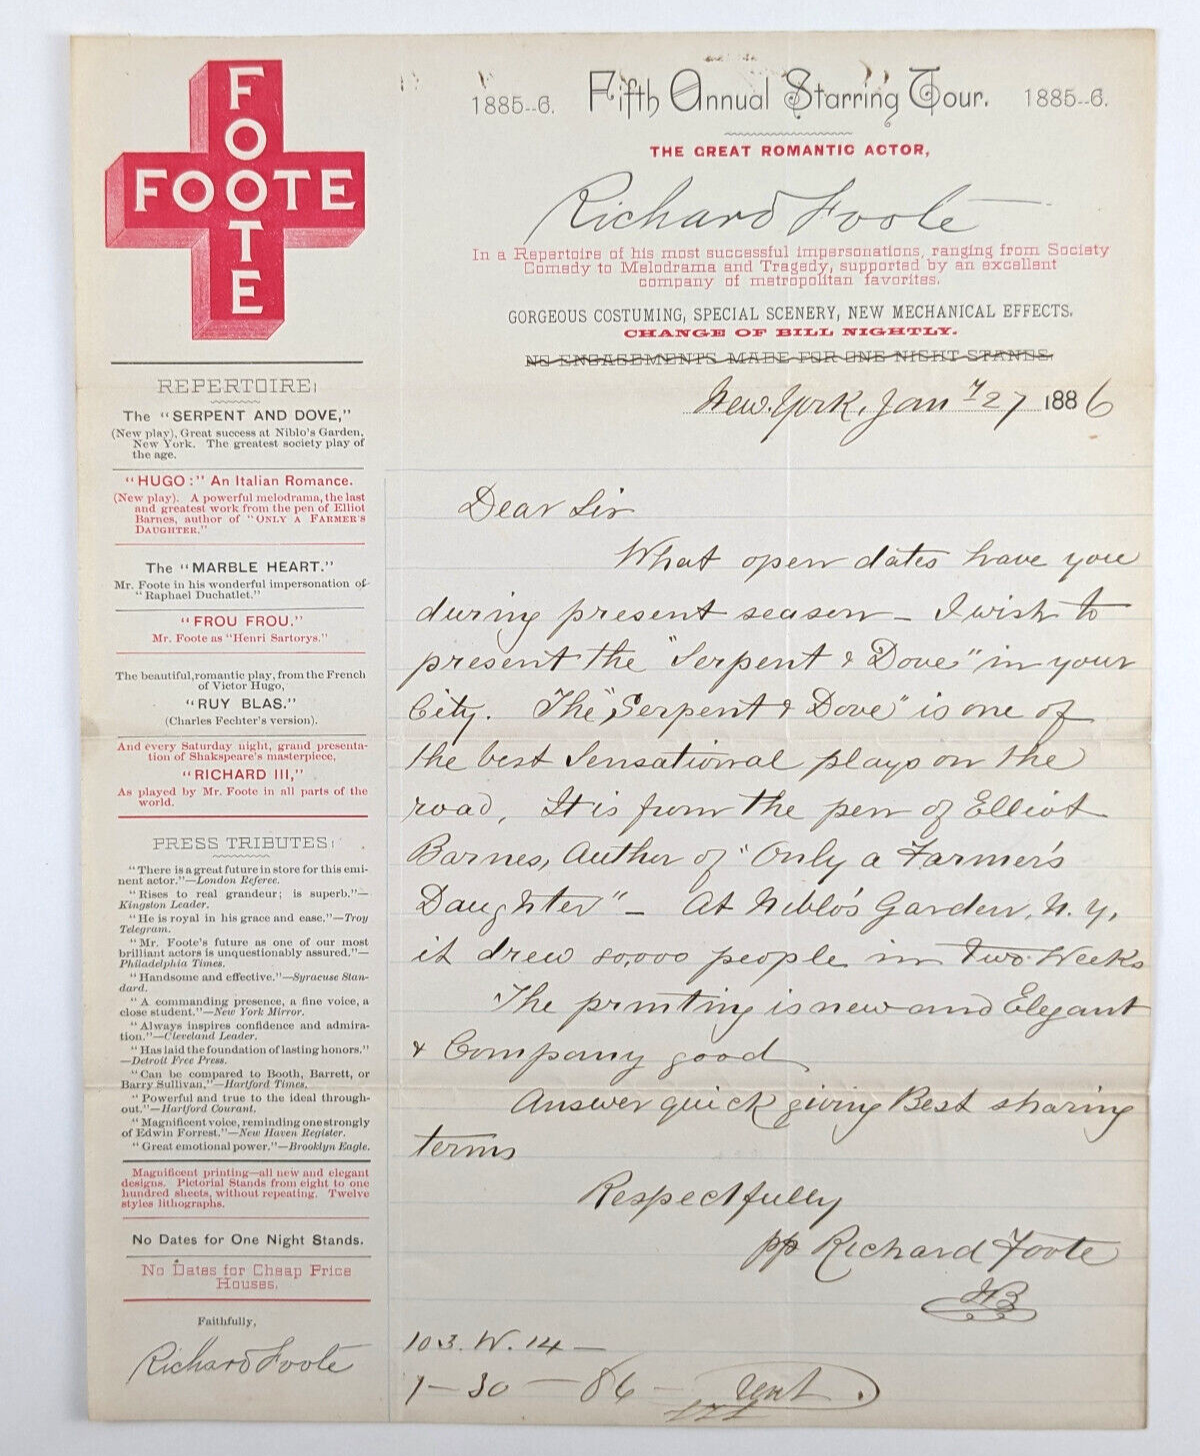 FOOTE
FOOTE
1885--6. Fifth Annual Starring Tour. 1885--6.
THE GREAT ROMANTIC ACTOR,
Richard Foote
In a Repertoire of his most successful impersonations, ranging from Society
Comedy to Melodrama and Tragedy, supported by an excellent
company of metropolitan favorites.
GORGEOUS COSTUMING, SPECIAL SCENERY, NEW MECHANICAL EFFECTS.
CHANGE OF BILL NIGHTLY.
NO ENGAGEMENTS MADE FOR ONE NIGHT STANDS.
New York, Jan 27 1886
REPERTOIRE:
The "SERPENT AND DOVE,"
(New play), Great success at Niblo's Garden,
New York. The greatest society play of
the age.
"HUGO:" An Italian Romance.
(New play). A powerful melodrama, the last
and greatest work from the pen of Elliot
Barnes, author of "ONLY A FARMER'S
DAUGHTER."
The "MARBLE HEART."
Mr. Foote in his wonderful impersonation of
"Raphael Duchatlet."
"FROU FROU."
Mr. Foote as "Henri Sartorys."
The beautiful, romantic play, from the French
of Victor Hugo,
"RUY BLAS."
(Charles Fechter's version).
And every Saturday night, grand presenta-
tion of Shakspeare's masterpiece,
"RICHARD III,"
As played by Mr. Foote in all parts of the
world.
PRESS TRIBUTES:
"There is a great future in store for this emi-
nent actor."—London Referee.
"Rises to real grandeur; is superb."—
Kingston Leader.
"He is royal in his grace and ease."—Troy
Telegram.
"Mr. Foote's future as one of our most
brilliant actors is unquestionably assured."—
Philadelphia Times.
"Handsome and effective."—Syracuse Stan-
dard.
"A commanding presence, a fine voice, a
close student."—New York Mirror.
"Always inspires confidence and admira-
tion."—Cleveland Leader.
"Has laid the foundation of lasting honors."
—Detroit Free Press.
"Can be compared to Booth, Barrett, or
Barry Sullivan."—Hartford Times.
"Powerful and true to the ideal through-
out."—Hartford Courant.
"Magnificent voice, reminding one strongly
of Edwin Forrest."—New Haven Register.
"Great emotional power."—Brooklyn Eagle.
Magnificent printing—all new and elegant
designs. Pictorial Stands from eight to one
hundred sheets, without repeating. Twelve
styles lithographs.
No Dates for One Night Stands.
No Dates for Cheap Price
Houses.
Faithfully,
Richard Foote
Dear Sir
What open dates have you
during present season — I wish to
present the "Serpent & Dove" in your
City. The "Serpent & Dove" is one of
the best Sensational plays on the
road, It is from the pen of Elliot
Barnes, Author of "Only a Farmer's
Daughter" — At Niblo's Garden, N. Y,
it drew 80,000 people in two Weeks
The printing is new and Elegant
& Company good
Answer quick giving Best sharing
terms
Respectfully
pp Richard Foote
103. W. 14 —
1—30—86—